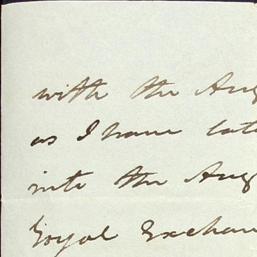 with the Aug
as I have late
into the Aug
Royal Exchan